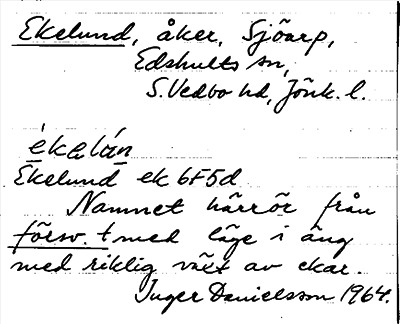 Ekelund, åker, Sjöarp,
Edshults sn,
S. Vedbo hd, Jönk. l.
èkalán
Ekelund ek 6F5d
Namnet härrör från
försv. t med läge i äng
med riklig växt av ekar.
Inger Danielsson 1964.